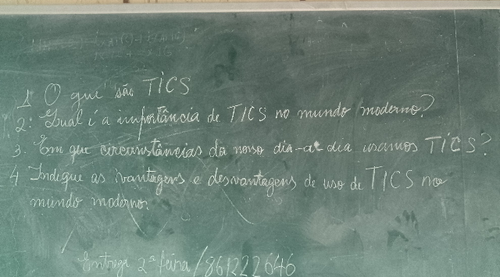 1. O que são TICS
2. Qual é a importância de TICS no mundo moderno?
3. Em que circunstâncias do nosso dia-a-dia usamos TICS?
4. Indique as vantagens e desvantagens de uso de TICS no
mundo moderno.
Entrega 2ª feira / 861222646